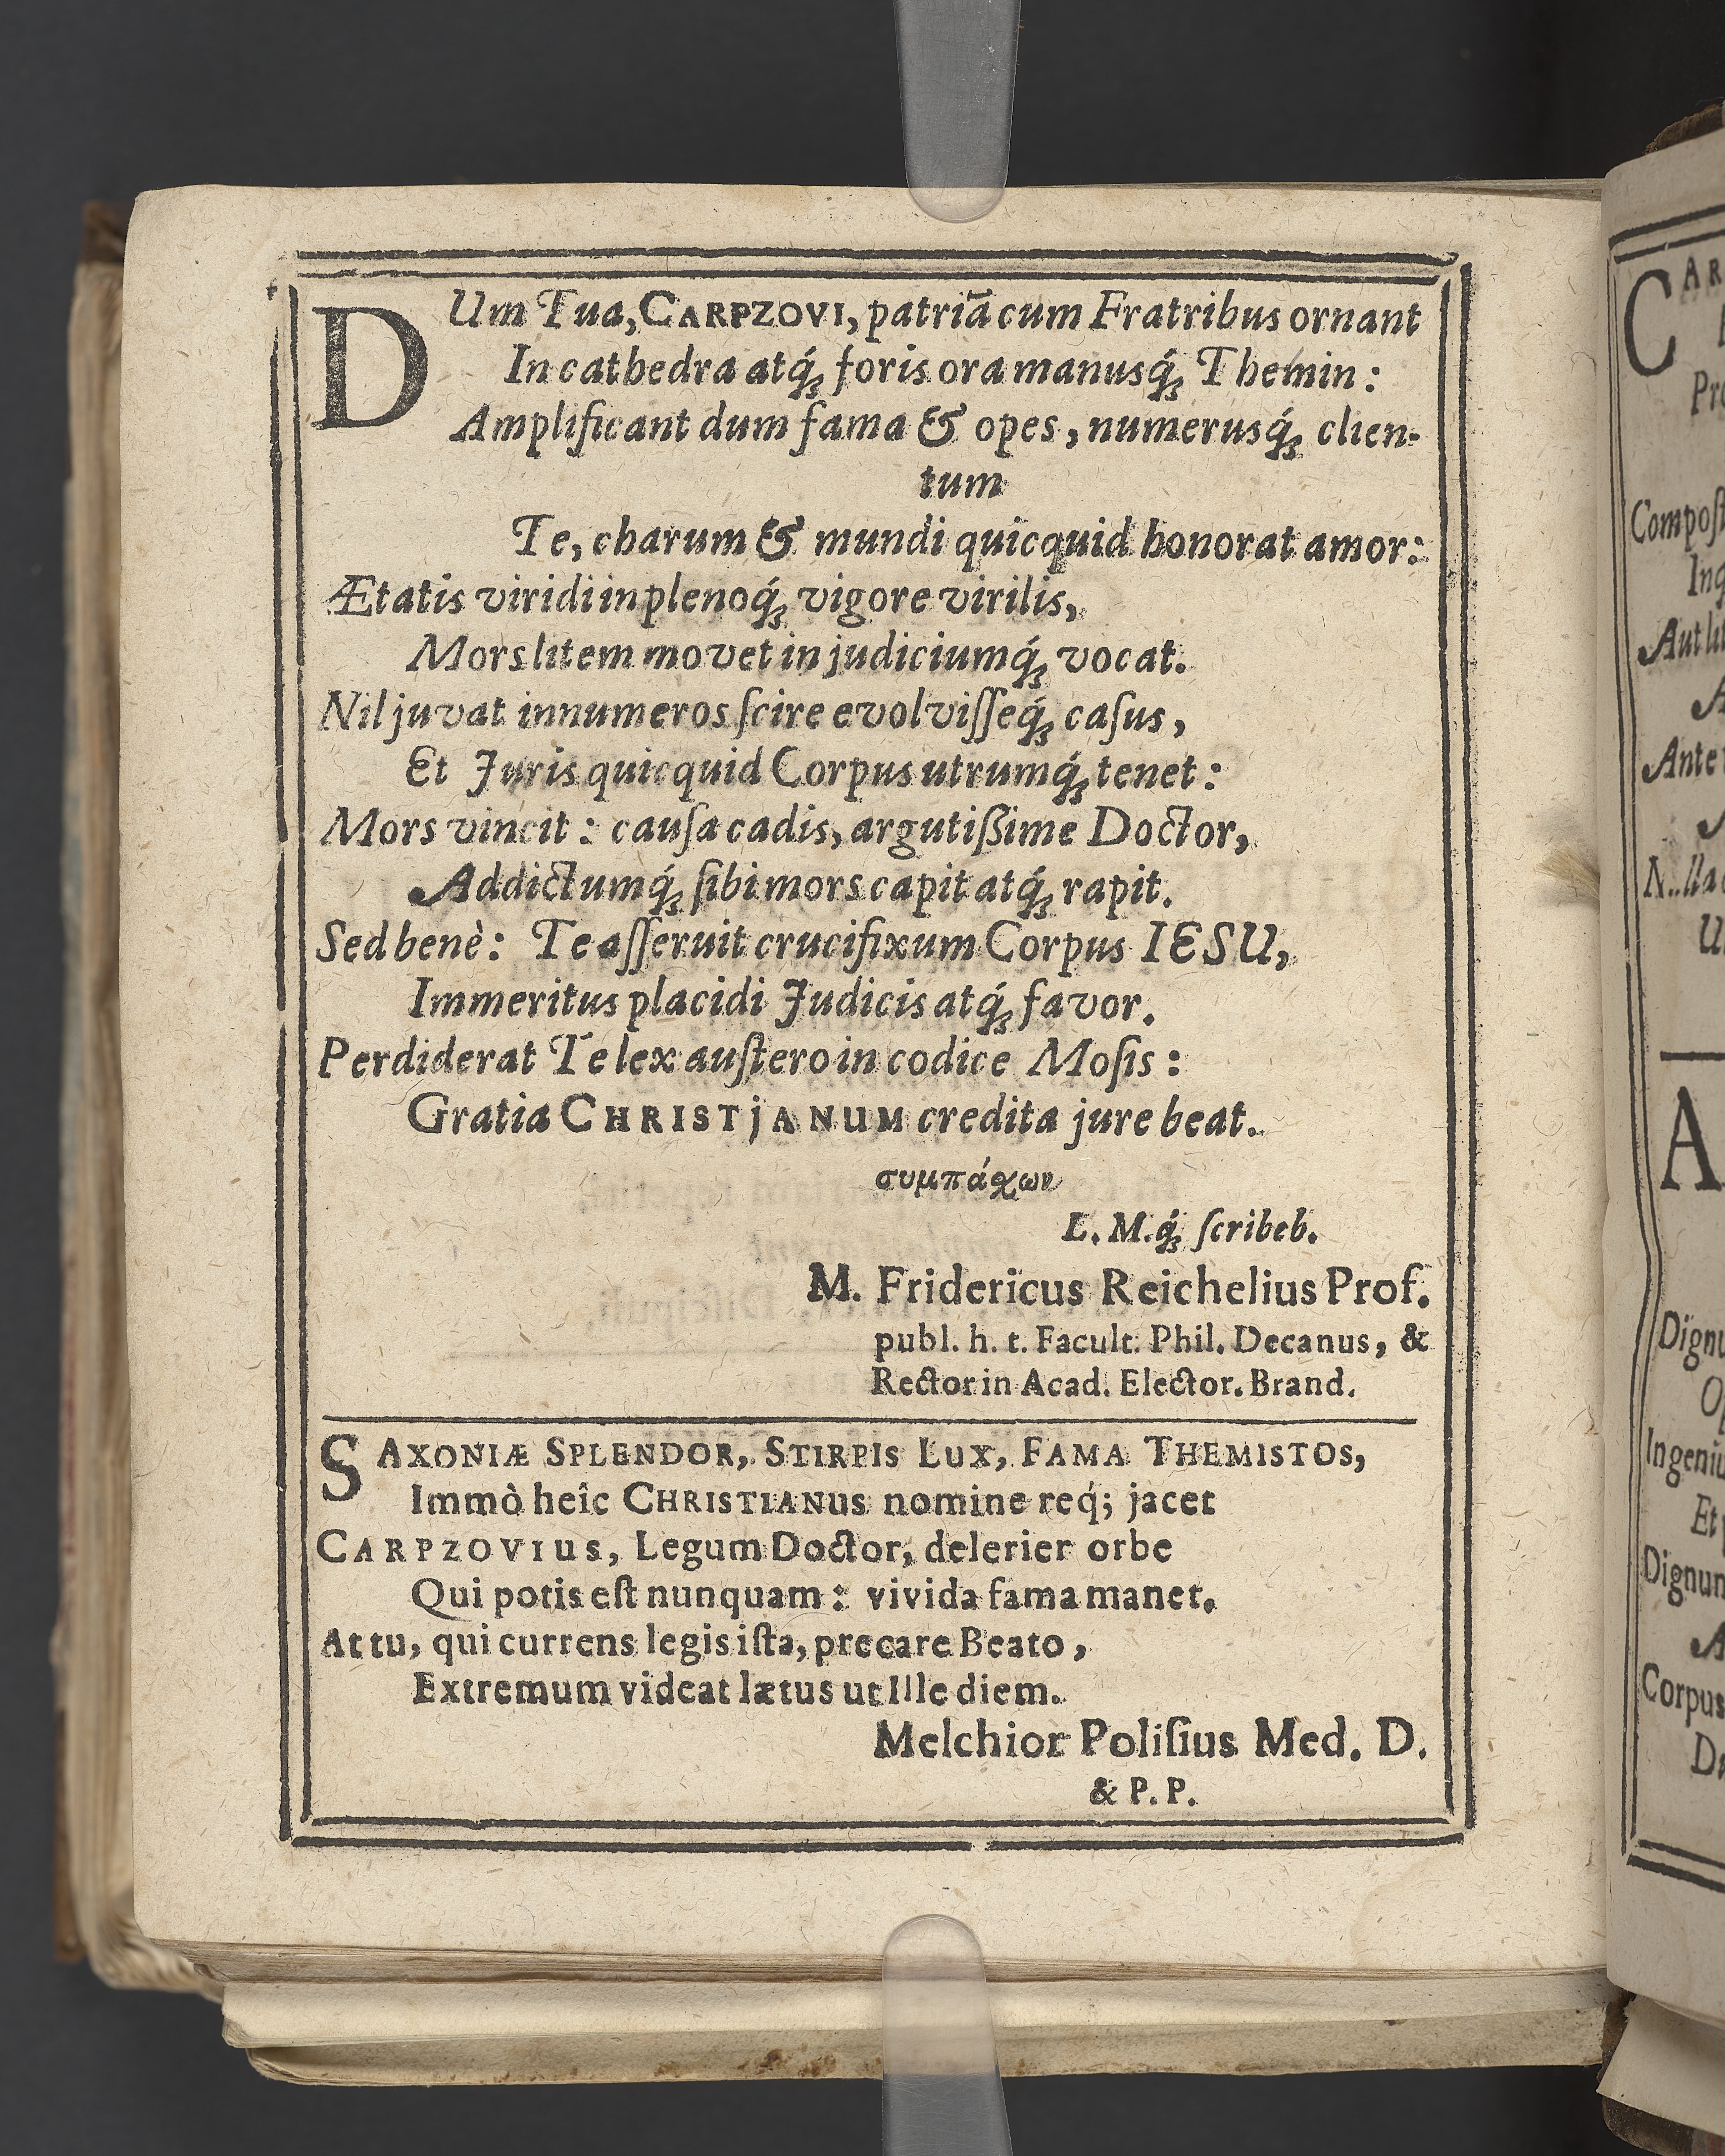 DUm Tua, CARPZOVI, patriā cum Fratribus ornant
In cathedra atq́; foris ora manusq́; Themin:
Amplificant dum fama & opes, numerusq́; clien-
tum
Te, charum & mundi quicquid honorat amor:
Ætatis viridi in plenoq́; vigore virilis,
Mors litem movet in judiciumq́; vocat.
Nil juvat innumeros ſcire evolviſſeq́; caſus,
Et Juris quicquid Corpus utrumq́; tenet:
Mors vincit: cauſa cadis, argutißime Doctor,
Addictumq́; ſibi mors capit atq́; rapit.
Sed benè: Te aſſeruit crucifixum Corpus IESU,
Immeritus placidi Judicis atq́; favor.
Perdiderat Te lex auſtero in codice Moſis:
Gratia CHRISTjANUM credita jure beat.
συμπάχων
L. M.q́; ſcribeb.
M. Fridericus Reichelius Prof.
publ. h. t. Facult. Phil. Decanus, &
Rector in Acad. Elector. Brand.
SAXONIÆ SPLENDOR, STIRPIS LUX, FAMA THEMISTOS,
Immò heîc CHRISTIANus nomine req́; jacet
CARPZOVIus, Legum Doctor, delerier orbe
Qui potis eſt nunquam: vivida fama manet.
At tu, qui currens legis iſta, precare Beato,
Extremum videat lætus ut Ille diem.
Melchior Poliſius Med. D.
& P. P.
CAR
Pro
Compoſ
Inq
Aut lit
Ante
U
A
Dignu
Op
Ingeniu
Et
Dignum
Corpus
De